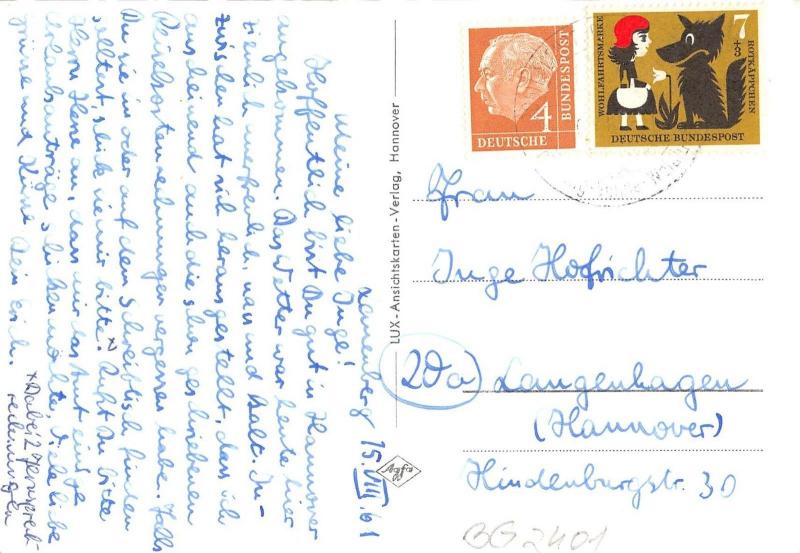 Lauenberg 15.VIII.61
Meine liebe Inge!
Hoffentlich bist Du gut in Hannover
angekommen. Das Wetter war heute hier
ziemlich unerfreulich, nass und kalt. In-
zwischen hat sich herausgestellt, dass ich
anscheinend auch die schon geschriebenen
Reisekostenrechnungen vergessen habe. Falls
Du sie in oder auf dem Schreibtisch finden
solltest, schick sie mir bitte. x) Rufst Du bitte
Herrn Hese an, dass mir das Amt einige
Urlaubsanträge schicken möchte, Viele liebe
Grüsse und Küsse Dein Erich.
x Dabei 2 Fernsprech-
rechnungen
LUX-Ansichtskarten-Verlag, Hannover
Agfa
4
DEUTSCHE
BUNDESPOST
WOHLFAHRTSMARKE
7
+3
ROTKÄPPCHEN
DEUTSCHE BUNDESPOST
Frau
Inge Hofrichter
20a) Langenhagen
(Hannover)
Hindenburgstr. 30
BG 2401